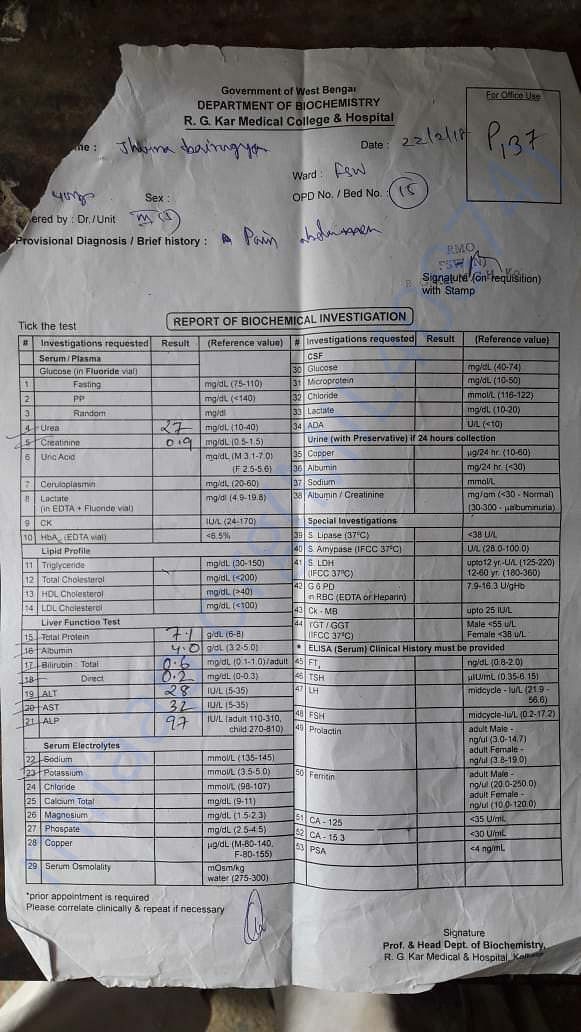 Government of West Bengal
DEPARTMENT OF BIOCHEMISTRY
R. G. Kar Medical College & Hospital
For Office Use
P,137
me :
Date : 22/2/18
Ward : FSW
OPD No. / Bed No. : 15
Sex :
ered by : Dr./Unit
Provisional Diagnosis / Brief history : Pain abdomen
RMO
Signature (on requisition)
with Stamp
REPORT OF BIOCHEMICAL INVESTIGATION
Tick the test
# Investigations requested Result (Reference value)
Serum / Plasma
Glucose (in Fluoride vial)
1 Fasting mg/dL (75-110)
2 PP mg/dL (<140)
3 Random mg/dl
4 Urea 27 mg/dL (10-40)
5 Creatinine 0.9 mg/dL (0.5-1.5)
6 Uric Acid mg/dL (M 3.1-7.0)
(F 2.5-5.6)
7 Ceruloplasmin mg/dL (20-60)
8 Lactate mg/dl (4.9-19.8)
(in EDTA + Fluoride vial)
9 CK IU/L (24-170)
10 HbA (EDTA vial) <6.5%
Lipid Profile
11 Triglyceride mg/dL (30-150)
12 Total Cholesterol mg/dL (<200)
13 HDL Cholesterol mg/dL (>40)
14 LDL Cholesterol mg/dL (<100)
Liver Function Test
15 Total Protein 7.1 g/dL (6-8)
16 Albumin 4.0 g/dL (3.2-5.0)
17 Bilirubin : Total 0.6 mg/dL (0.1-1.0)/adult
18 Direct 0.2 mg/dL (0-0.3)
19 ALT 28 IU/L (5-35)
20 AST 32 IU/L (5-35)
21 ALP 97 IU/L (adult 110-310,
child 270-810)
Serum Electrolytes
22 Sodium mmol/L (135-145)
23 Potassium mmol/L (3.5-5.0)
24 Chloride mmol/L (98-107)
25 Calcium Total mg/dL (9-11)
26 Magnesium mg/dL (1.5-2.3)
27 Phospate mg/dL (2.5-4.5)
28 Copper µg/dL (M-80-140,
F-80-155)
29 Serum Osmolality mOsm/kg
water (275-300)
# Investigations requested Result (Reference value)
CSF
30 Glucose mg/dL (40-74)
31 Microprotein mg/dL (10-50)
32 Chloride mmol/L (116-122)
33 Lactate mg/dL (10-20)
34 ADA U/L (<10)
Urine (with Preservative) if 24 hours collection
35 Copper µg/24 hr. (10-60)
36 Albumin mg/24 hr. (<30)
37 Sodium mmol/L
38 Albumin / Creatinine mg/gm (<30 - Normal)
(30-300 - µalbuminuria)
Special Investigations
39 S. Lipase (37°C) <38 U/L
40 S. Amypase (IFCC 37°C) U/L (28.0-100.0)
41 S. LDH upto12 yr.-U/L (125-220)
(IFCC 37°C) 12-60 yr. (180-360)
42 G 6 PD 7.9-16.3 U/gHb
in RBC (EDTA or Heparin)
43 Ck - MB upto 25 IU/L
44 YGT / GGT Male <55 u/L
(IFCC 37°C) Female <38 u/L
* ELISA (Serum) Clinical History must be provided
45 FT4 ng/dL (0.8-2.0)
46 TSH µIU/mL (0.35-6.15)
47 LH midcycle - Iu/L (21.9 -
56.6)
48 FSH midcycle-Iu/L (0.2-17.2)
49 Prolactin adult Male -
ng/ul (3.0-14.7)
adult Female -
ng/ul (3.8-19.0)
50 Ferritin adult Male -
ng/ul (20.0-250.0)
adult Female -
ng/ul (10.0-120.0)
51 CA - 125 <35 U/mL
52 CA - 15 3 <30 U/mL
53 PSA <4 ng/mL
*prior appointment is required
Please correlate clinically & repeat if necessary
Signature
Prof. & Head Dept. of Biochemistry,
R. G. Kar Medical & Hospital, Kolkata